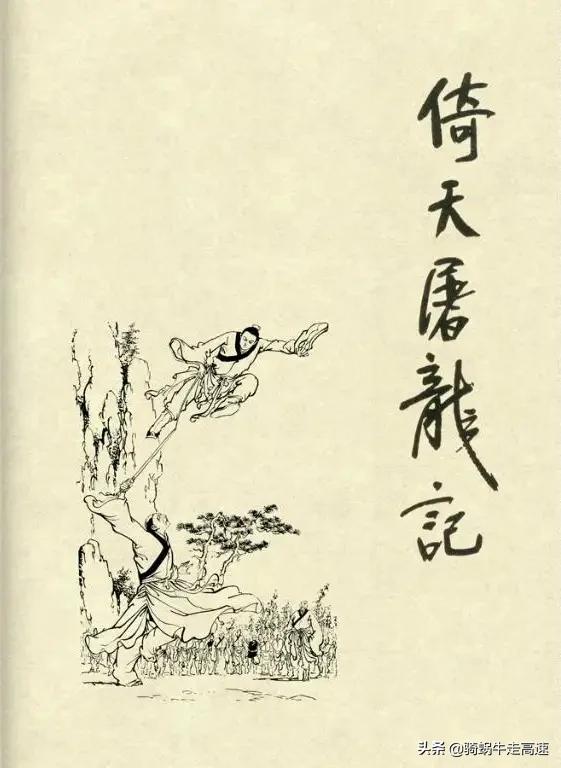 倚天屠龍記
头条 @骑蜗牛走高速